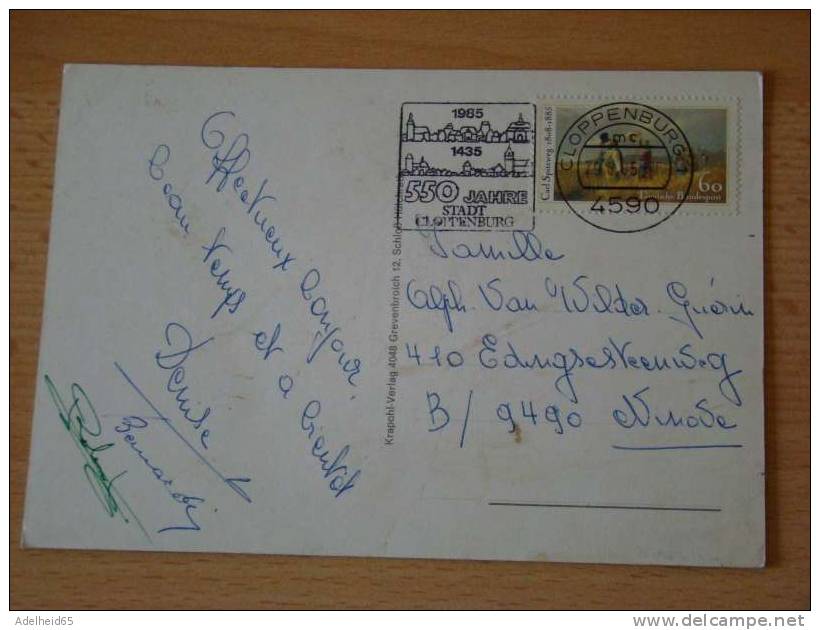 Affectueux bonjour,
beau temps et a bientôt
Denise
1985
1435
550 JAHRE
STADT
CLOPPENBURG
CLOPPENBURG 1
4590
Carl Spitzweg 1808-1885
60
Deutsche Bundespost
Krapohl-Verlag 4048 Grevenbroich 12, Schloß
Famille
Alph. Van Wilder-Guérin
410 Edingsesteenweg
B/ 9490 Ninove
Adelheid65
delcampe.net